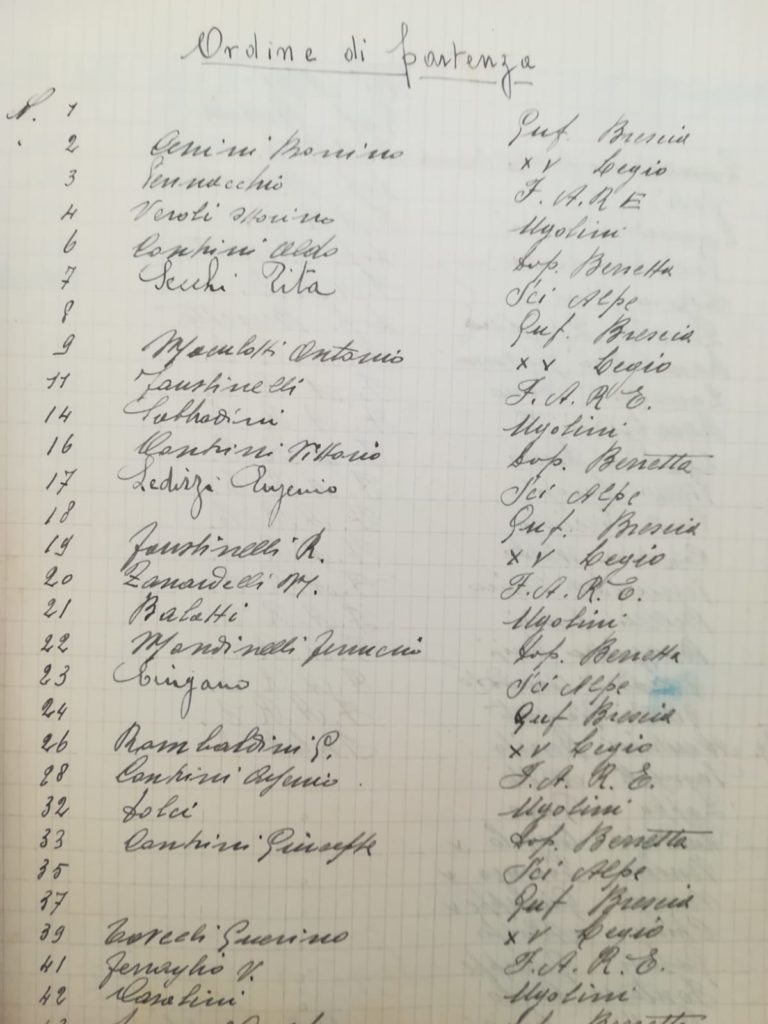 Ordine di partenza
N. 1 Guf. Brescia
2 Cenini Bonino XV Legio
3 Pennacchio F.A.R.E
4 Veroli Ugolini
6 Contrini Aldo Dop. Berretta
7 Secchi Rita Sci Alpe
8 Guf. Brescia
9 Maculotti Antonio XV Legio
11 Faustinelli F.A.R.E.
14 Ugolini
16 Contrini Vittorio Dop. Berretta
17 Eugenio Sci Alpe
18 Guf. Brescia
19 Faustinelli R. XV Legio
20 Zanardelli M. F.A.R.E.
21 Balotti Ugolini
22 Mondinelli Ferruccio Dop. Berretta
23 Cingano Sci Alpe
24 Guf Brescia
26 Rambaldini G. XV Legio
28 Contrini F.A.R.E.
32 Dolci Ugolini
33 Contrini Giuseppe Dop. Berretta
35 Sci Alpe
37 Guf Brescia
39 Guerino XV Legio
41 Ferraglio V. F.A.R.E.
42 Casolini Ugolini